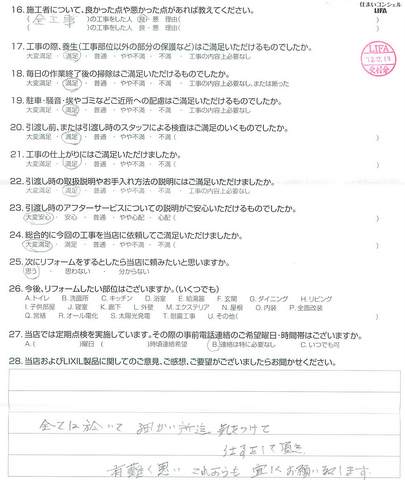 16. 施工者について、良かった点や悪かった点があれば教えてください。
住まいコンシェル
LIFA
( 全工事 )の工事をした人 良・悪 理由( )
( )の工事をした人 良・悪 理由( )
LIFA
17. 工事の際、養生(工事部位以外の部分の保護など)はご満足いただけるものでしたか。
大変満足 ・ 満足 ・ 普通 ・ やや不満 ・ 不満 ・ 工事の内容上必要なし
18. 毎日の作業終了後の掃除はご満足いただけるものでしたか。
大変満足 ・ 満足 ・ 普通 ・ やや不満 ・ 不満 ・ 工事の内容上必要なし、または断った
19. 駐車・騒音・埃やゴミなどご近所への配慮はご満足いただけるものでしたか。
大変満足 ・ 満足 ・ 普通 ・ やや不満 ・ 不満 ・ 工事の内容上必要なし
20. 引渡し前、または引渡し時のスタッフによる検査はご満足のいくものでしたか。
大変満足 ・ 満足 ・ 普通 ・ やや不満 ・ 不満 ( )
21. 工事の仕上がりにはご満足いただけましたか。
大変満足 ・ 満足 ・ 普通 ・ やや不満 ・ 不満 ( )
22. 引渡し時の取扱説明やお手入れ方法の説明にはご満足いただけましたか。
大変満足 ・ 満足 ・ 普通 ・ やや不満 ・ 不満 ・ 工事の内容上必要なし
23. 引渡し時のアフターサービスについての説明がご安心いただけるものでしたか。
大変安心 ・ 安心 ・ 普通 ・ やや心配 ・ 心配 ( )
24. 総合的に今回の工事を当店に依頼してご満足いただけましたか。
大変満足 ・ 満足 ・ 普通 ・ やや不満 ・ 不満 ( )
25. 次にリフォームをするとしたら当店に頼みたいと思いますか。
思う ・ 思わない ・ 分からない
26. 今後、リフォームしたい部位はございますか。(いくつでも)
A.トイレ B.洗面所 C.キッチン D.浴室 E.給湯器 F.玄関 G.ダイニング H.リビング
I.子供部屋 J.寝室 K.廊下 L.外壁 M.エクステリア N.屋根 O.内装 P.全面改装
Q.窓結 R.オール電化 S.太陽光発電 T.耐震工事 U.その他( )
27. 当店では定期点検を実施しています。その際の事前電話連絡のご希望曜日・時間帯はございますか。
A.( )曜日 ( )時頃連絡希望 B.連絡は特に必要なし C.いつでも可
28. 当店およびLIXIL製品に関してのご意見、ご感想、ご要望がございましたらお聞かせください。
全てに於いて 細かい所迄 気をつけて
仕事をして頂き
有難く思い これからも 宜しくお願い致します